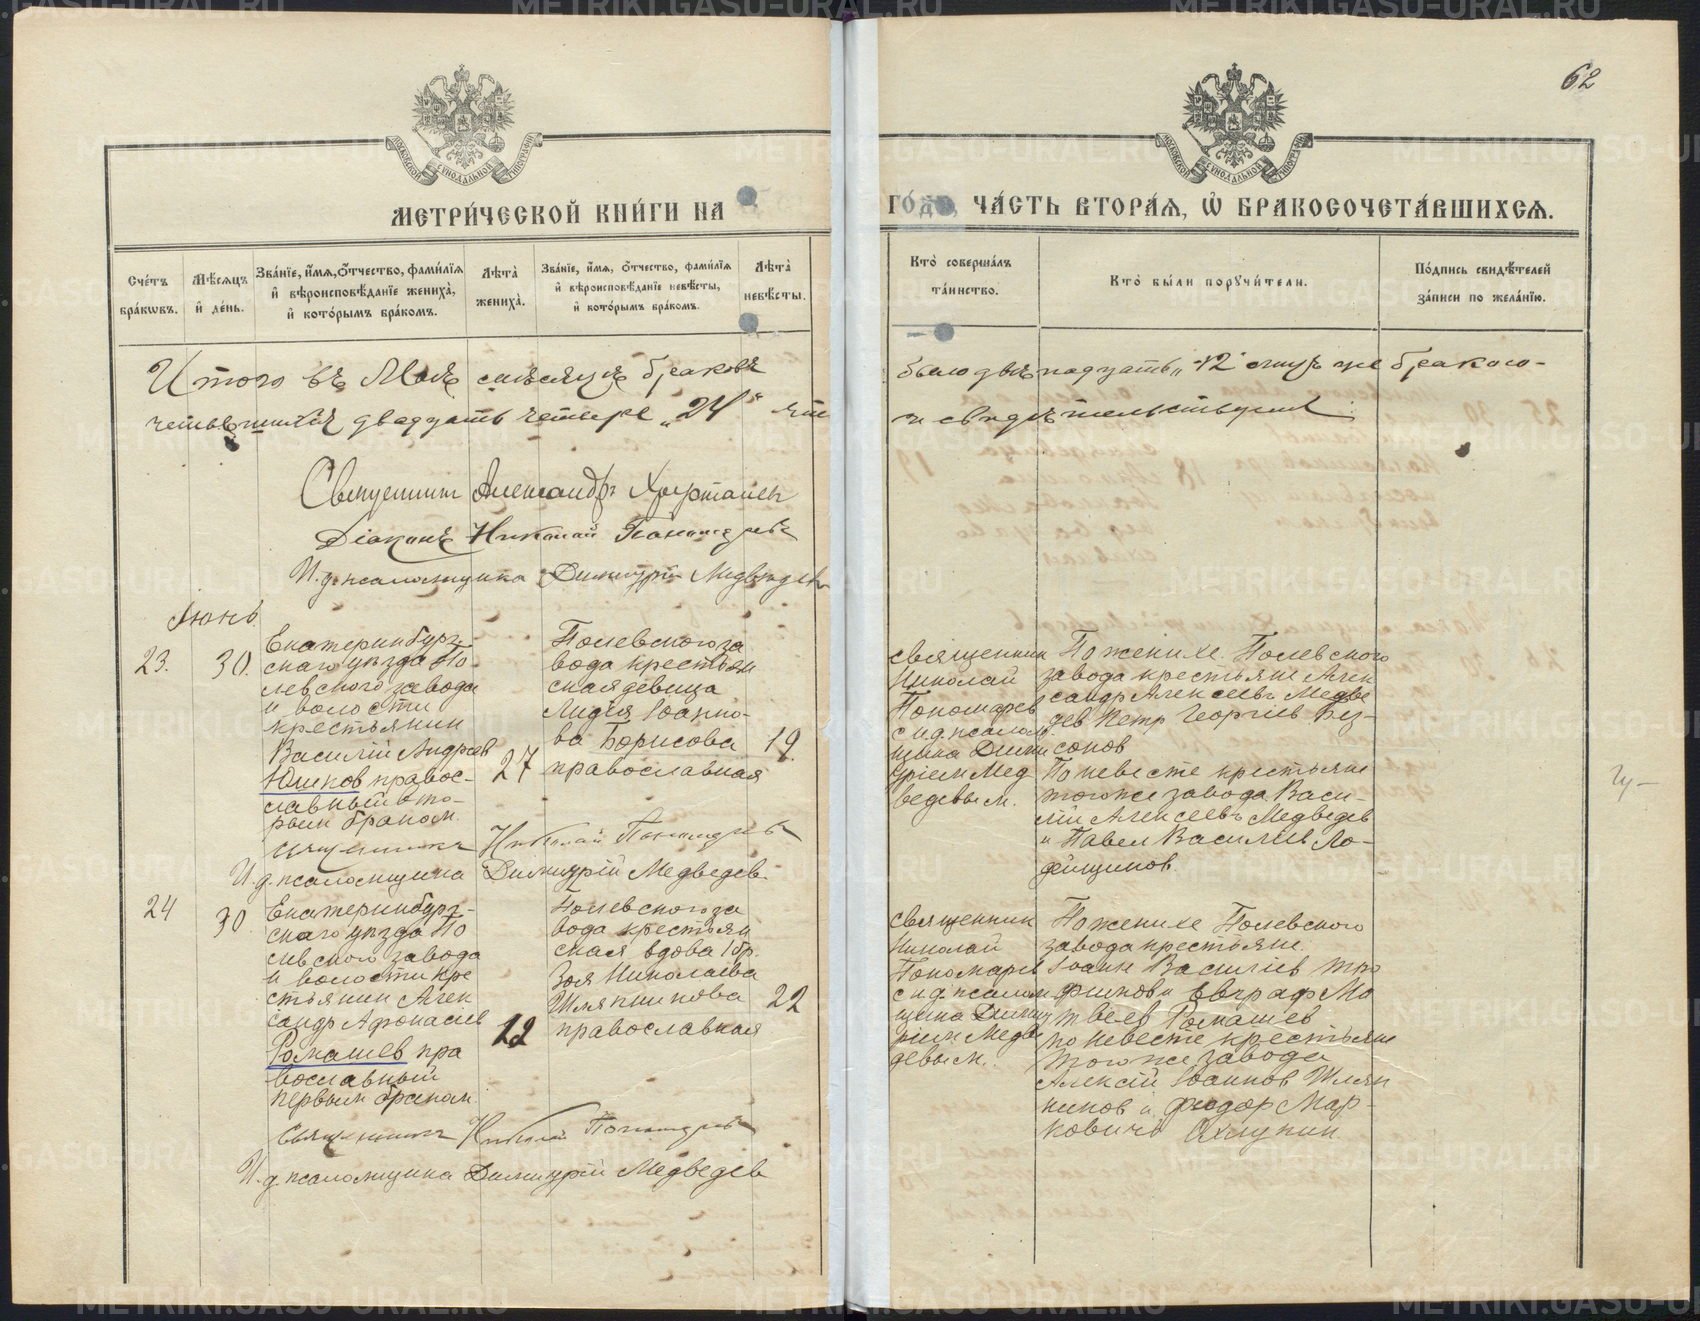 62
МЕТРИ́ЧЕСКОЙ КНИ́ГИ НА ГО́ДЪ, ЧА́СТЬ ВТОРА́Я, Ѡ҆ БРАКОСОЧЕТА́ВШИХСѦ.
Сче́тъ бра́кѡвъ.
Мѣ́сѧцъ и҆ де́нь.
Зва́нїе, и҆́мѧ, ѻ҆́тчество, фами́лїѧ и҆ вѣроисповѣ́данїе жениха̀, и҆ кото́рымъ бра́комъ.
Лѣта̀ жениха̀.
Зва́нїе, и҆́мѧ, ѻ҆́тчество, фами́лїѧ и҆ вѣроисповѣ́данїе невѣ́сты, и҆ кото́рымъ бра́комъ.
Лѣта̀ невѣ́сты.
Кто̀ соверша́лъ та́инство.
Кто̀ бы́ли порꙋчи́тели.
По́дпись свидѣ́телей за́писи по жела́нїю.
Итого въ Маѣ мѣсяцѣ браковъ было двѣнадцать „12“ лицъ же бракосо-
четавшихся двадцать четыре „24“
и свидѣтельствуемъ
Священникъ Александръ
Діаконъ Николай Пономаревъ
И. д. псаломщика Димитрій Медведев
Июнь.
23.
30.
Екатеринбург-
скаго уѣзда По-
левского завода
и волости
крестьянин
Василій Андреев
Юшков правос-
лавный вто-
рым браком
27
Полевского за
вода крестьян
ская девица
Лидія Іоанно-
ва Борисова
православная
19.
священник
Николай
Пономарев
с и.д. псалом
щика Дими
тріем Мед
ведевым.
По женихе Полевского
завода крестьяне Алек
сандр Алексеевъ Медве
дев Петр Георгіев Без-
сонов
По невесте крестьяне
того же завода Васи-
лій Алексеевъ Медведев
и Павел Василіев Ло-
сященникъ Николай Пономаревъ
И. д. псаломщика Димитрій Медведев
24
30
Екатеринбург-
скаго уѣзда По
левского завода
и волости кре
стьянин Алек
сандр Афонасіев
Ромашев пра
вославный
первым браком
22
Полевского за
вода крестьян
ская вдова 1 бр.
Зоя Николаева
Шляпникова
православная
22
священник
Николай
Пономарев
с и.д. псалом
щика Димит
ріем Медве
девым.
По женихе Полевского
завода крестьяне
Іоанн Василіев Тро
фимов и Евграф Ма
твеев Ромашев
по невесте крестьяне
того же завода
Алексій Іоаннов Шляп
ников и Феодор Мар-
кович
Священникъ Николай Пономаревъ
И. д. псаломщика Димитрій Медведев
METRIKI.GASO-URAL.RU